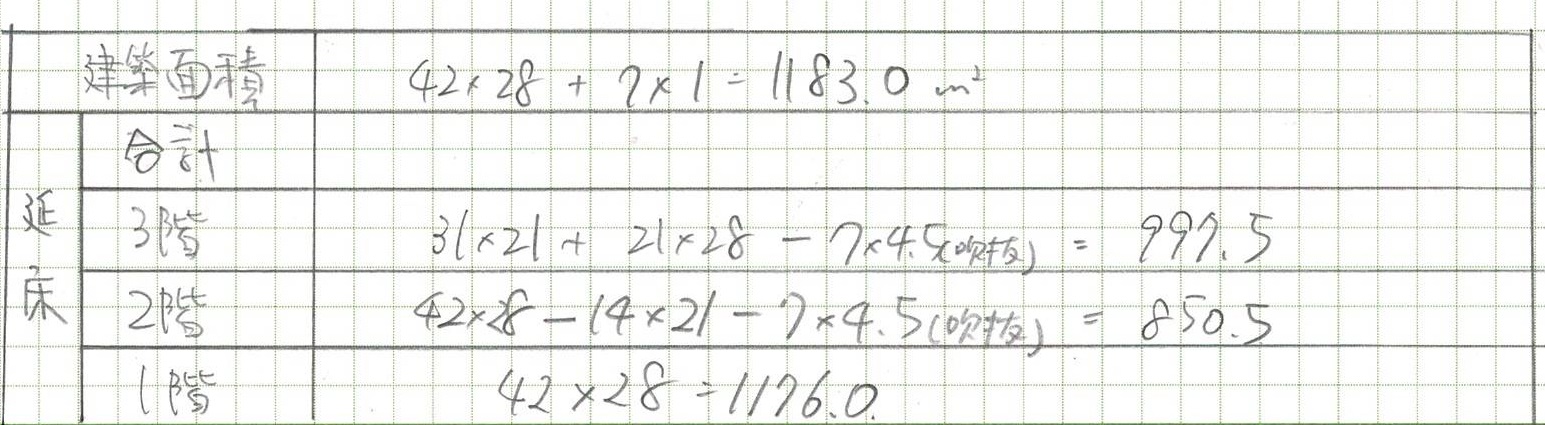 建築面積 42×28 + 7×1 = 1183.0 m²
延床
合計
3階 31×21 + 21×28 - 7×4.5(吹抜) = 997.5
2階 42×28 - 14×21 - 7×4.5(吹抜) = 850.5
1階 42×28 = 1176.0